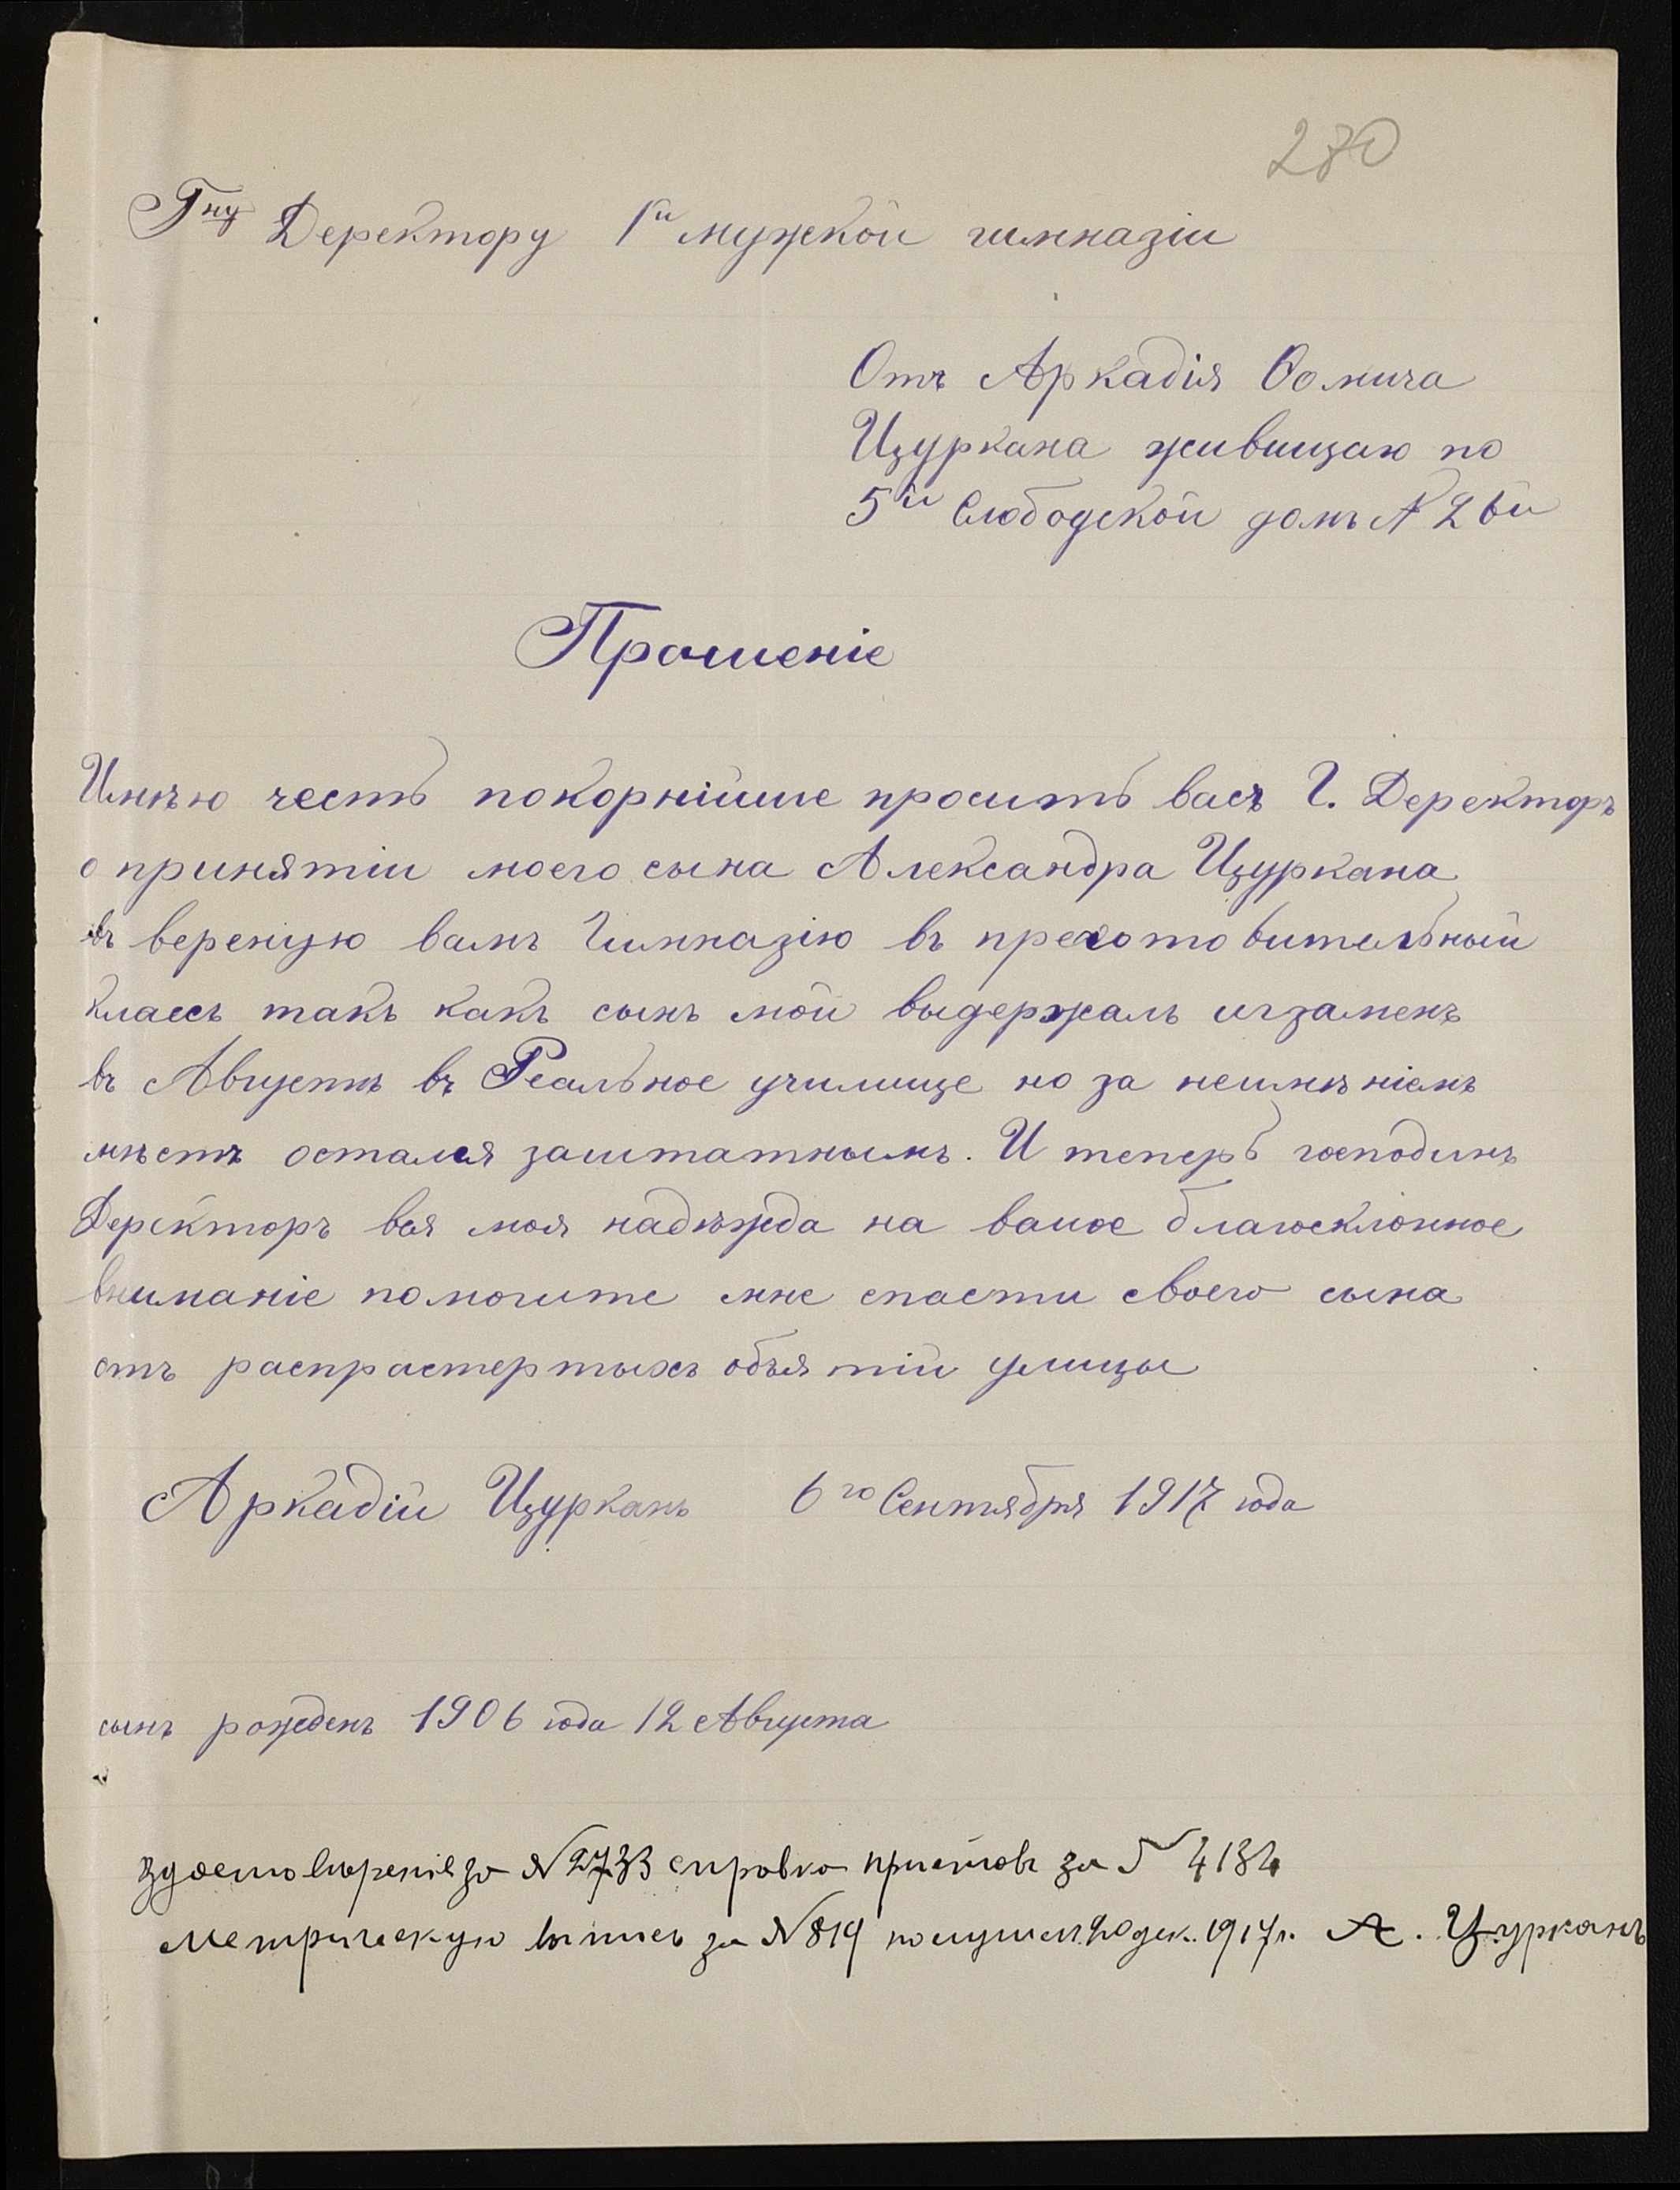 280
Гну Деректору 1й мужкой гимназіи
Отъ Аркадія Ѳомича
Цуркана живищаю по
5й Слободской домъ № 26й
Прошеніе
Имѣю честь покорнійше просить васъ Г. Деректоръ
о принятіи моего сына Александра Цуркана
въ вереную вамъ Гимназію въ преготовительный
классъ такъ какъ сынъ мой выдержалъ игзаменъ
въ Августѣ въ Реальное училище но за неимѣніемъ
мѣстъ остался заштатнымъ. И теперь господинъ
Деректоръ вся моя надѣжда на ваше благосклонное
вниманіе помогите мне спасти своего сына
отъ распрастертыхъ объятій улицы
Аркадій Цурканъ 6го Сентября 1917 года
сынъ рожденъ 1906 года 12 Августа
за № 2733 справка за № 4134
Метрическую за № 819 20 дек. 1917 г. А. Цурканъ